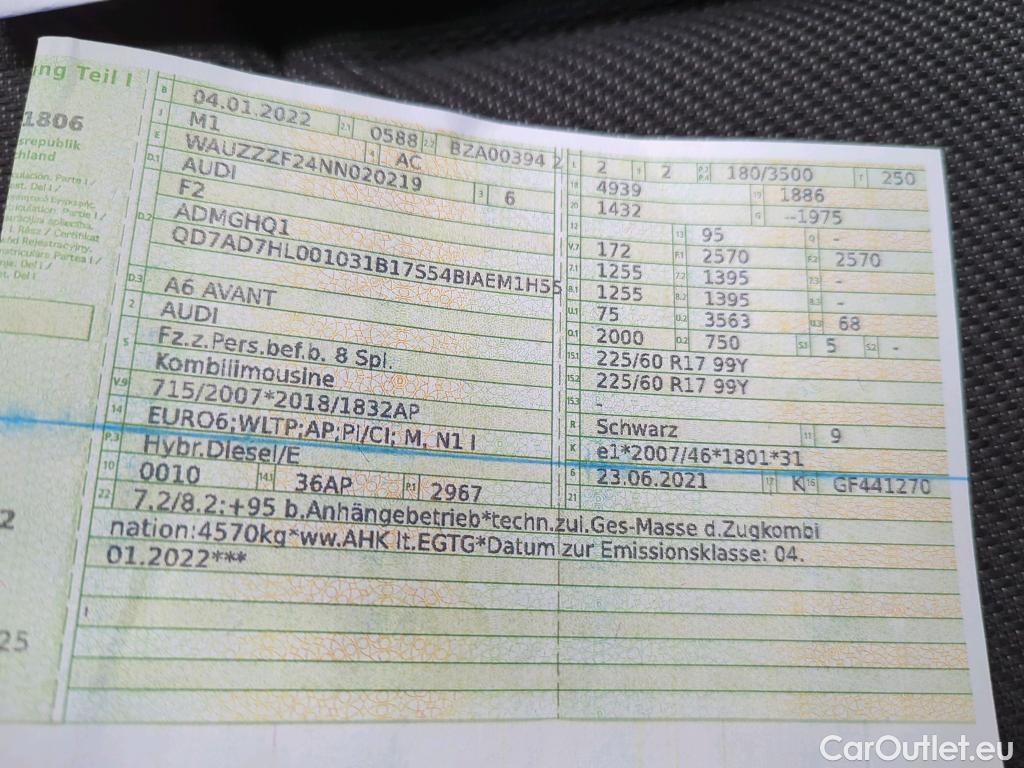 ng Teil I
1806
srepublik
chland
B 04.01.2022 2.1 0588 2.2 BZA00394 2
J M1 4 AC
E WAUZZZF24NN020219 3 6
D.1 AUDI
F2
D.2 ADMGHQ1
QD7AD7HL001031B17S54BIAEM1H55
D.3 A6 AVANT
2 AUDI
5 Fz.z.Pers.bef.b. 8 Spl.
Kombilimousine
V.9 715/2007*2018/1832AP
14 EURO6;WLTP;AP;PI/CI; M, N1 I
P.3 Hybr.Diesel/E
10 0010 14.1 36AP P.1 2967
L 2 9 2 P.2 P.4 180/3500 T 250
18 4939 19 1886
20 1432 G --1975
12 13 95 Q -
V.7 172 F.1 2570 F.2 2570
7.1 1255 7.2 1395 7.3 -
8.1 1255 8.2 1395 8.3 -
U.1 75 U.2 3563 U.3 68
O.1 2000 O.2 750 S.1 5 S.2 -
15.1 225/60 R17 99Y
15.2 225/60 R17 99Y
15.3 -
R Schwarz 11 9
K e1*2007/46*1801*31
6 23.06.2021 17 K 16 GF441270
21
22 7.2/8.2:+95 b.Anhängebetrieb*techn.zul.Ges-Masse d.Zugkombi
nation:4570kg*ww.AHK lt.EGTG*Datum zur Emissionsklasse: 04.
01.2022***
2
25
CarOutlet.eu